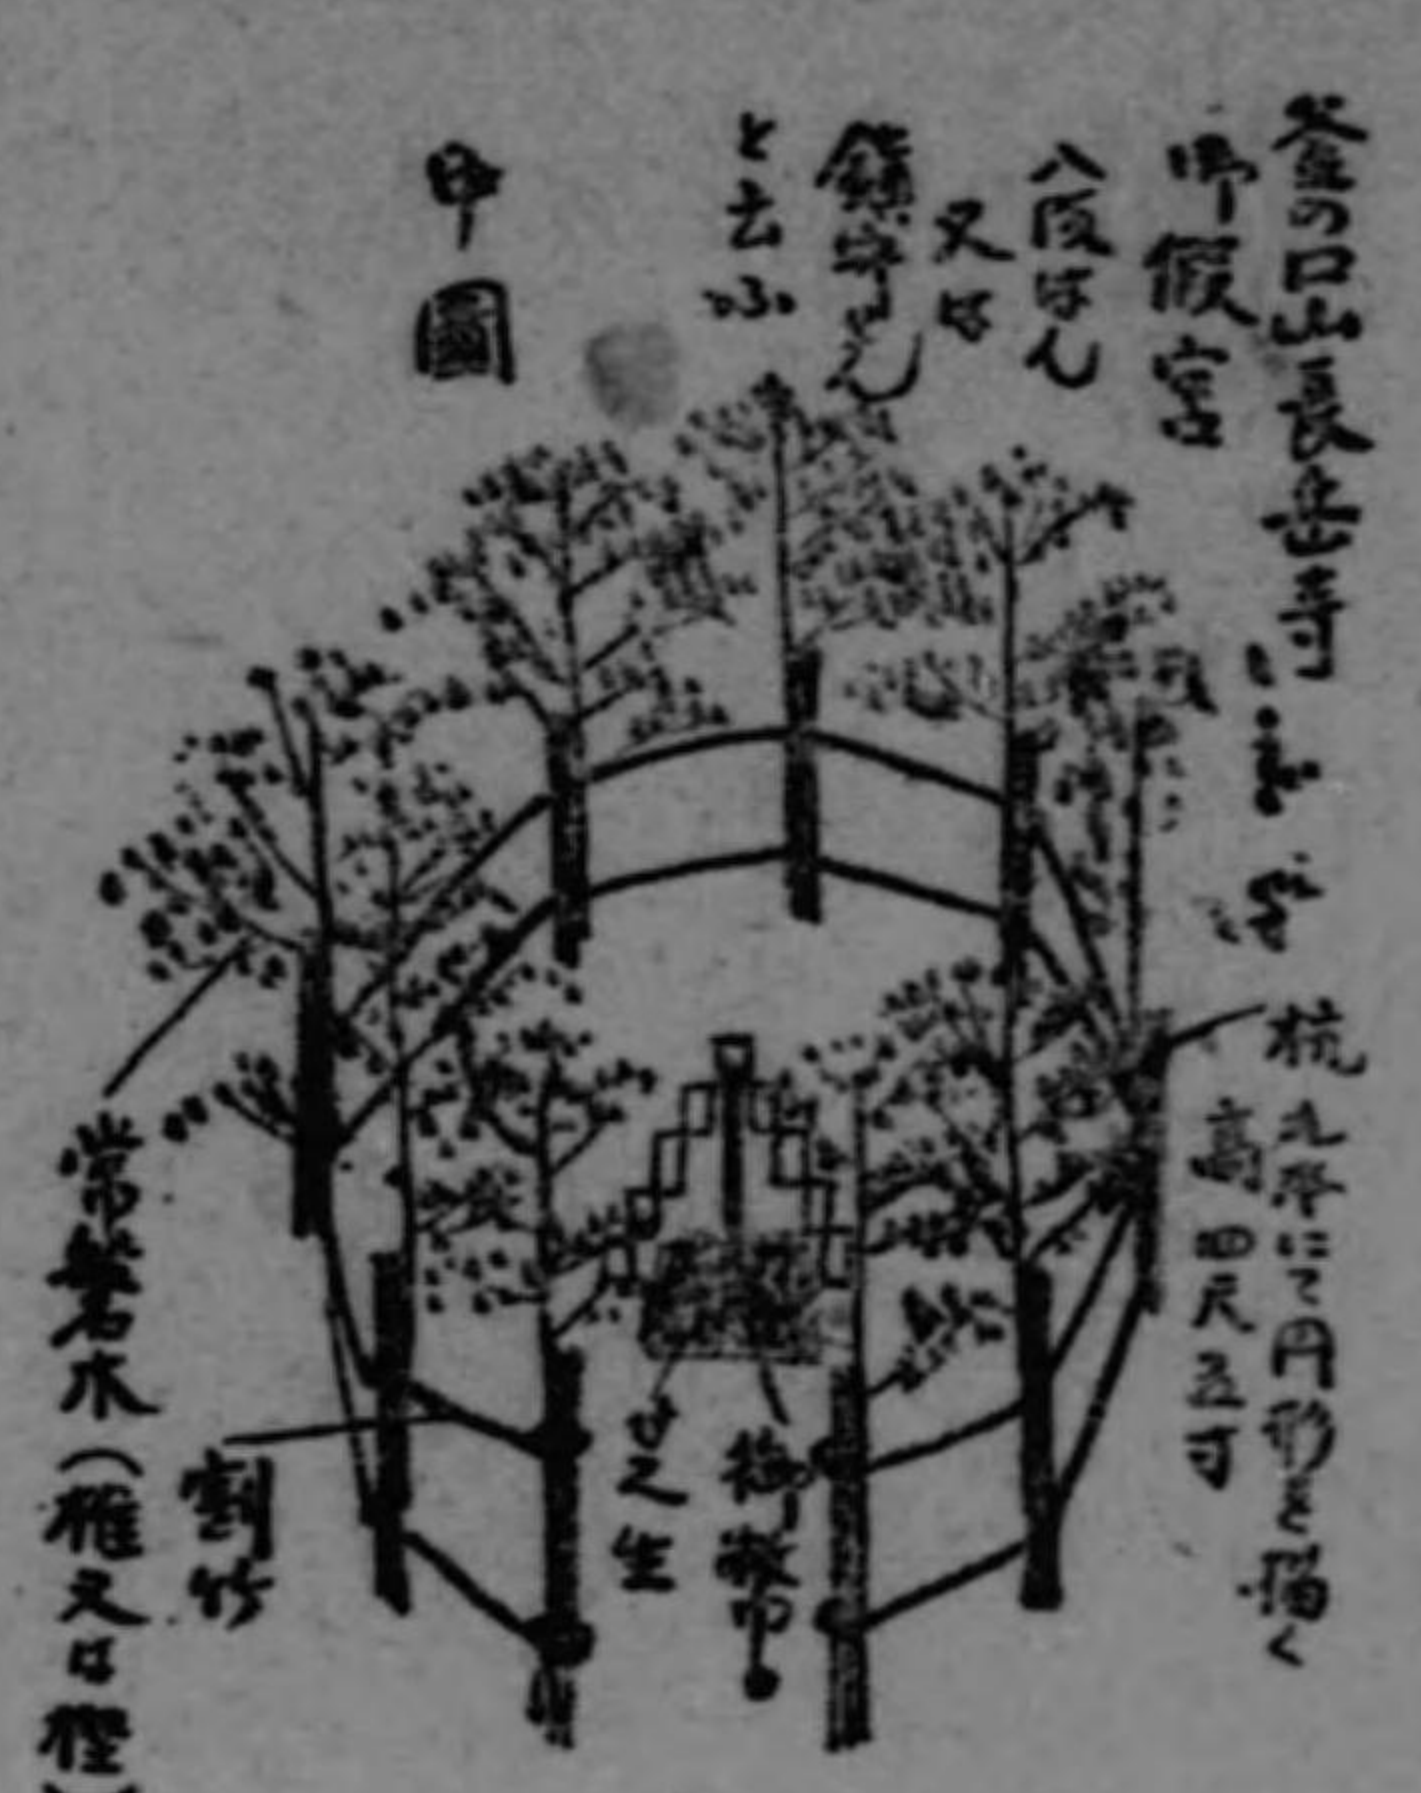 釜の口山長岳寺
御假宮
八阪はん
又は
鎮守さん
と云ふ
甲圖
杭九本にて円形を描く
高四尺五寸
御幣
芝生
割竹
常磐木(椎又は樫)